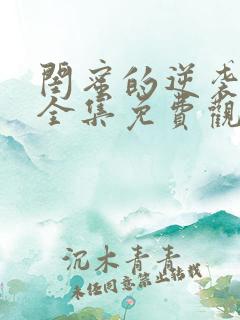 閨蜜的逆袭
全集免費觀
沉木青青
未经同意禁止转载